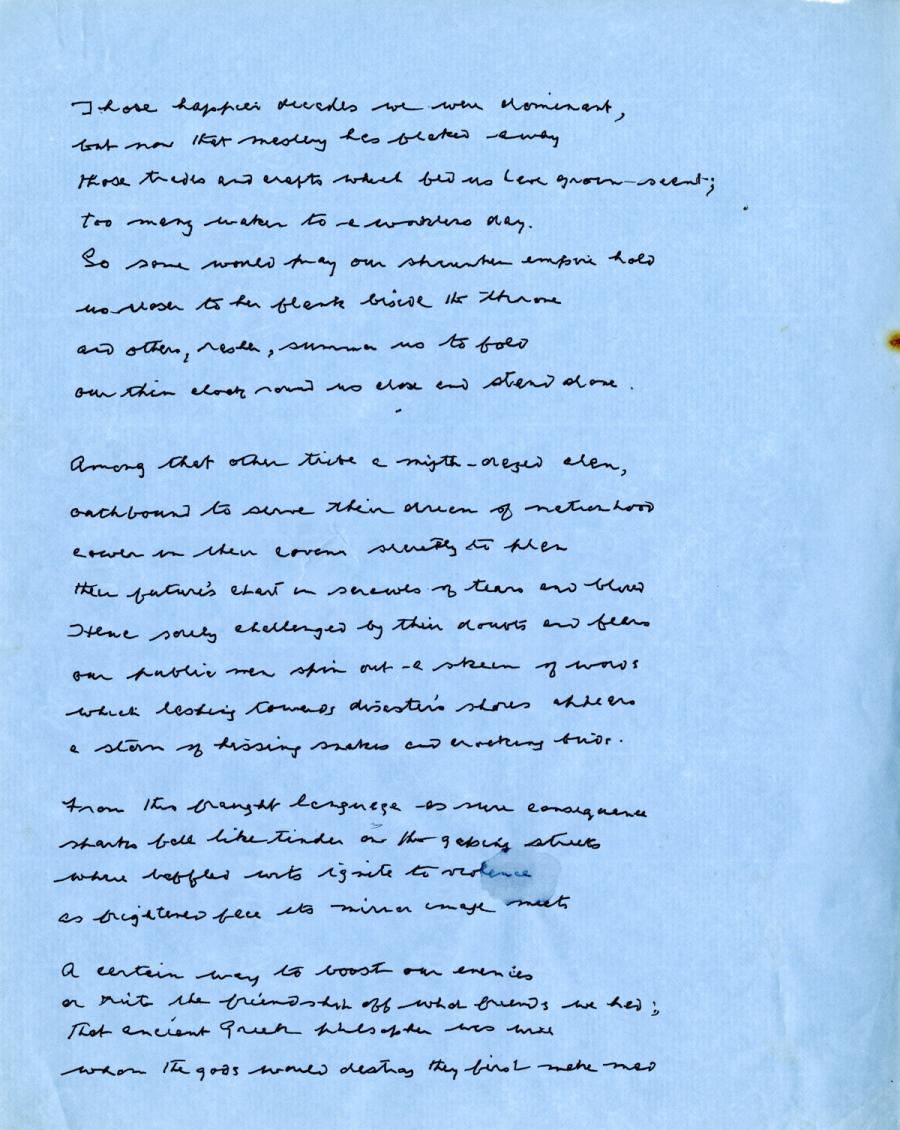 Those happier decades we were dominant,
but now that mastery has flaked away
those trades and crafts which fed us have grown scant;
too many waken to a workless day.
So some would pray our shrunken empire hold
us closer to her flank beside the throne
and others, rasher, summon us to fold
our thin cloak round us close and stand alone.
Among that other tribe a myth-crazed clan,
oathbound to serve their dream of nationhood
cower in their covens secretly to plan
their future's chart in scrawls of tears and blood
Hence sorely challenged by their doubts and fears
our public men spin out a skein of words
which lashing towards disaster's shores appears
a storm of hissing snakes and croaking birds.
From this fraught language as sure consequence
sparks fall like tinder on the gaping streets
where baffled wits ignite to violence
as frightened face its mirror image meets
A certain way to boost our enemies
or the friendship off what friends we had;
That ancient Greek philosopher was wise
whom the gods would destroy they first make mad